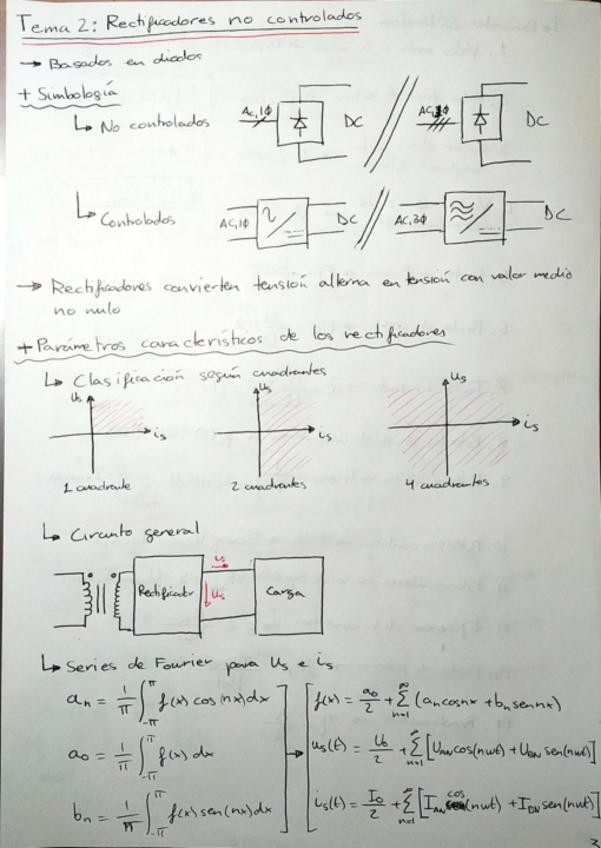 Tema 2: Rectificadores no controlados
→ Basados en diodos
+ Simbología
↳ No controlados AC,1ϕ DC AC,3ϕ DC
↳ Controlados AC,1ϕ DC AC,3ϕ DC
→ Rectificadores convierten tensión alterna en tensión con valor medio
no nulo
+ Parámetros característicos de los rectificadores
↳ Clasificación según cuadrantes
us us us
is is is
1 cuadrante 2 cuadrantes 4 cuadrantes
↳ Circuito general
is
Rectificador us Carga
↳ Series de Fourier para Us e is
an = 1/π ∫_-π^π f(x) cos(nx)dx
f(x) = a0/2 + Σ_n=1^∞ (an cosnx + bn sennx)
a0 = 1/π ∫_-π^π f(x) dx
us(t) = U0/2 + Σ_n=1^∞ [UAN cos(nwt) + UBN sen(nwt)]
bn = 1/π ∫_-π^π f(x) sen(nx)dx
is(t) = I0/2 + Σ_n=1^∞ [IAN cos(nwt) + IBN sen(nwt)]